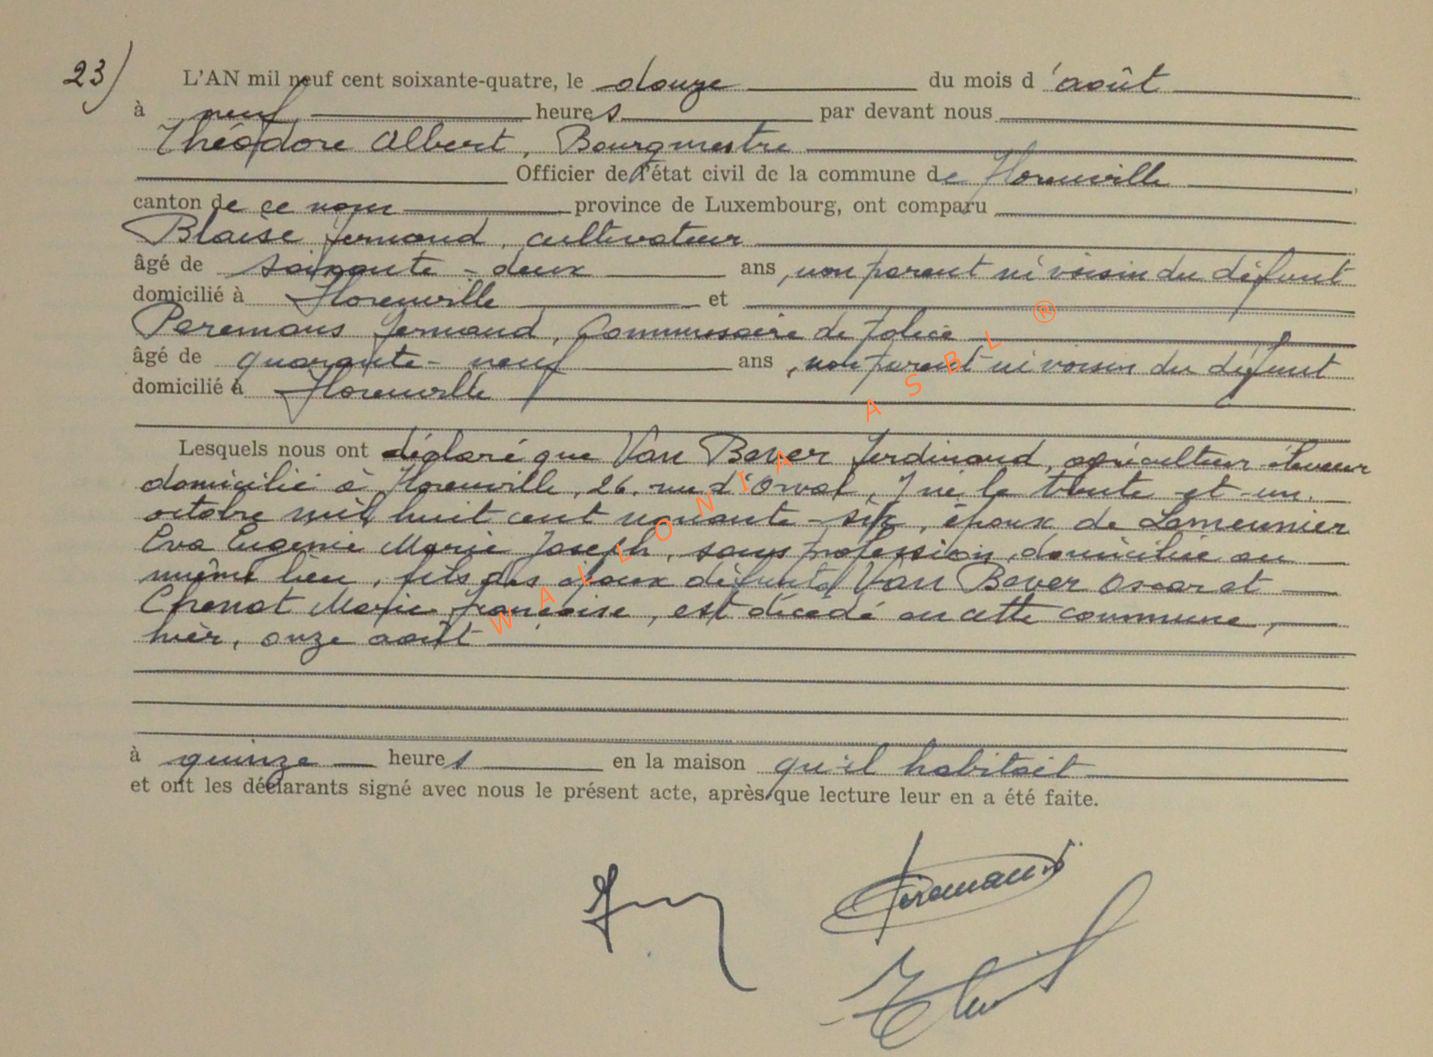 23)
L'AN mil neuf cent soixante-quatre, le douze du mois d'août
à neuf heures par devant nous
Théodore Albert, Bourgmestre
Officier de l'état civil de la commune de Florenville
canton de ce nom province de Luxembourg, ont comparu
Blaise Fernand, cultivateur
âgé de soixante-deux ans, non parent ni voisin du défunt
domicilié à Florenville et
Peremans Fernand, Commissaire de police
âgé de quarante-neuf ans, non parent ni voisin du défunt
domicilié à Florenville
Lesquels nous ont déclaré que Van Bever Ferdinand, agriculteur-éleveur
domicilié à Florenville, 26, rue d'Orval, y né le trente et un
octobre mil huit cent nonante-six, époux de Lameunier
Eva Eugénie Marie Joseph, sans profession, domiciliée au
même lieu, fils des époux défunts Van Bever Oscar et
Chenot Marie Françoise, est décédé en cette commune,
hier, onze août
à quinze heures en la maison qu'il habitait
et ont les déclarants signé avec nous le présent acte, après que lecture leur en a été faite.
Peremans
WALLONIA ASBL ®